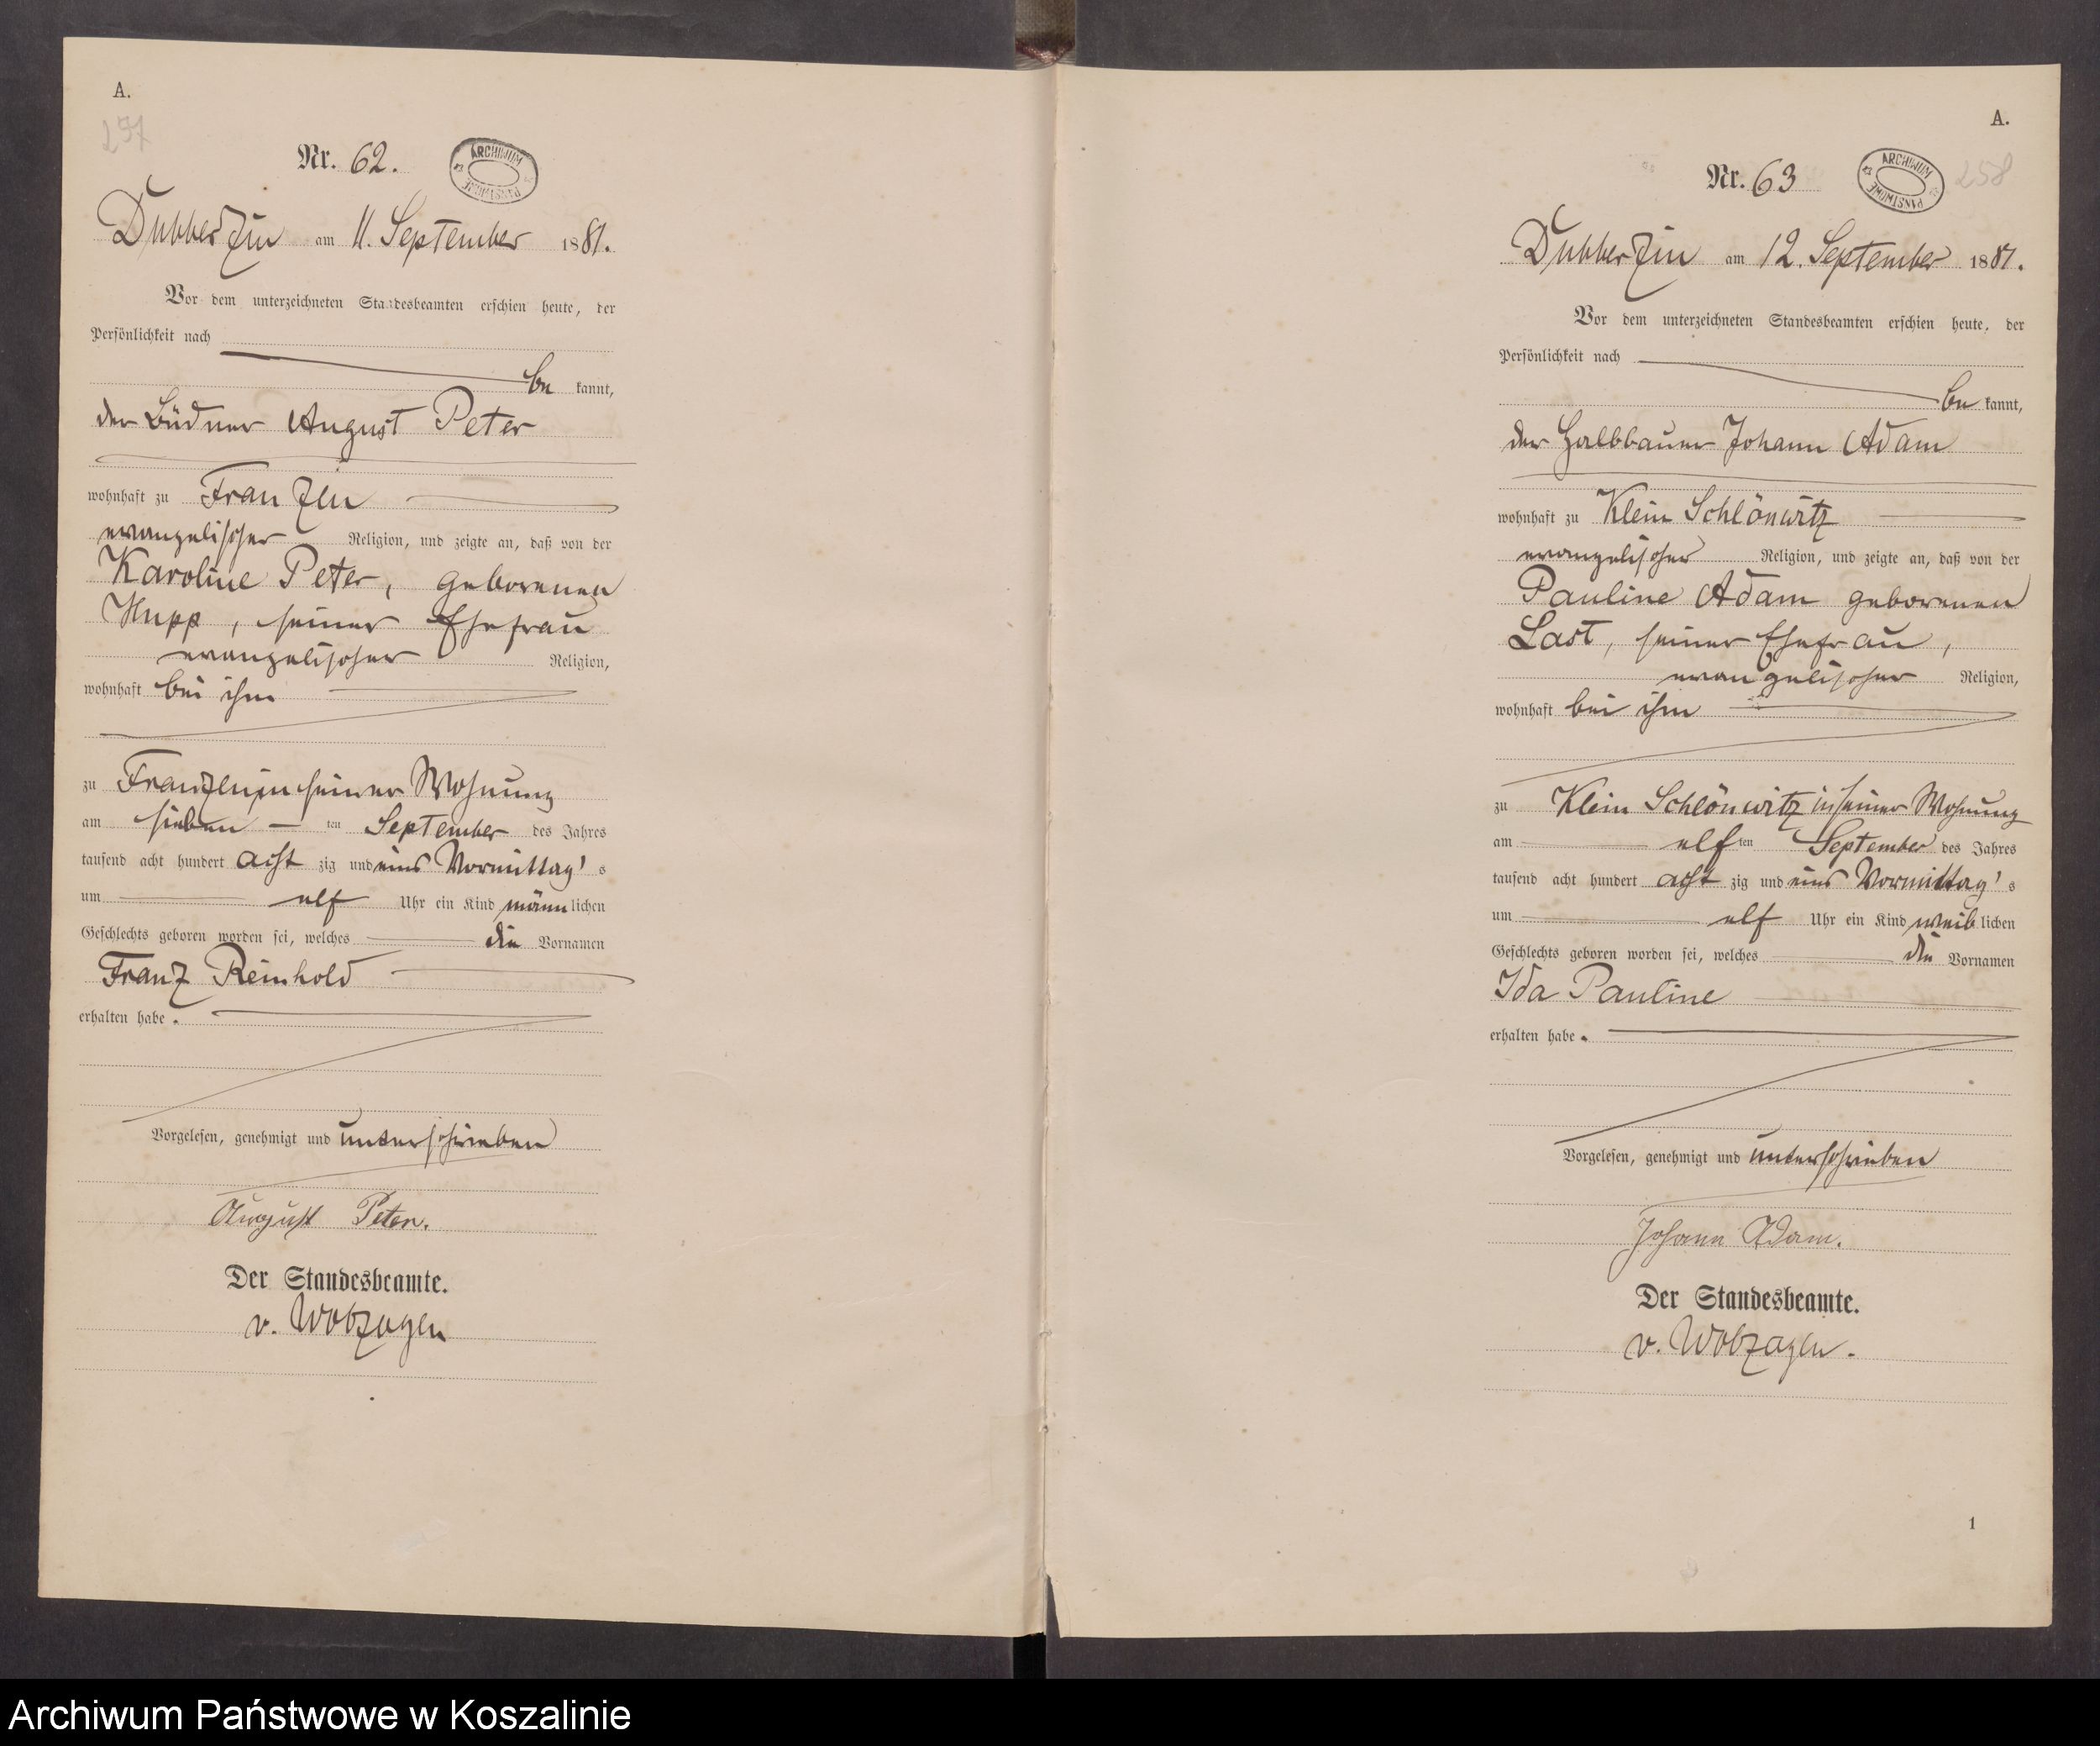 A.
257
Nr. 62.
ARCHIWUM PAŃSTWOWE
Dubberzin am 11. September 1881.
Vor dem unterzeichneten Standesbeamten erschien heute, der
Persönlichkeit nach
be kannt,
der Büdner August Peter
wohnhaft zu Franzen
evangelischer Religion, und zeigte an, daß von der
Karoline Peter, geborenen
Hupp, seiner Ehefrau
evangelischer Religion,
wohnhaft bei ihm
zu Franzen in seiner Wohnung
am sieben ten September des Jahres
tausend acht hundert acht zig und eins Vormittag's
um elf Uhr ein Kind männlichen
Geschlechts geboren worden sei, welches die Vornamen
Franz Reinhold
erhalten habe.
Vorgelesen, genehmigt und unterschrieben
August Peter.
Der Standesbeamte.
v. Wobzagen
A.
Nr. 63
ARCHIWUM PAŃSTWOWE
258
Dubberzin am 12. September 1881.
Vor dem unterzeichneten Standesbeamten erschien heute, der
Persönlichkeit nach
be kannt,
der Halbbauer Johann Adam
wohnhaft zu Klein Schlönwitz
evangelischer Religion, und zeigte an, daß von der
Pauline Adam geborenen
Last, seiner Ehefrau,
evangelischer Religion,
wohnhaft bei ihm
zu Klein Schlönwitz in seiner Wohnung
am elf ten September des Jahres
tausend acht hundert acht zig und eins Vormittag's
um elf Uhr ein Kind weiblichen
Geschlechts geboren worden sei, welches die Vornamen
Ida Pauline
erhalten habe.
Vorgelesen, genehmigt und unterschrieben
Johann Adam.
Der Standesbeamte.
v. Wobzagen.
1
Archiwum Państwowe w Koszalinie